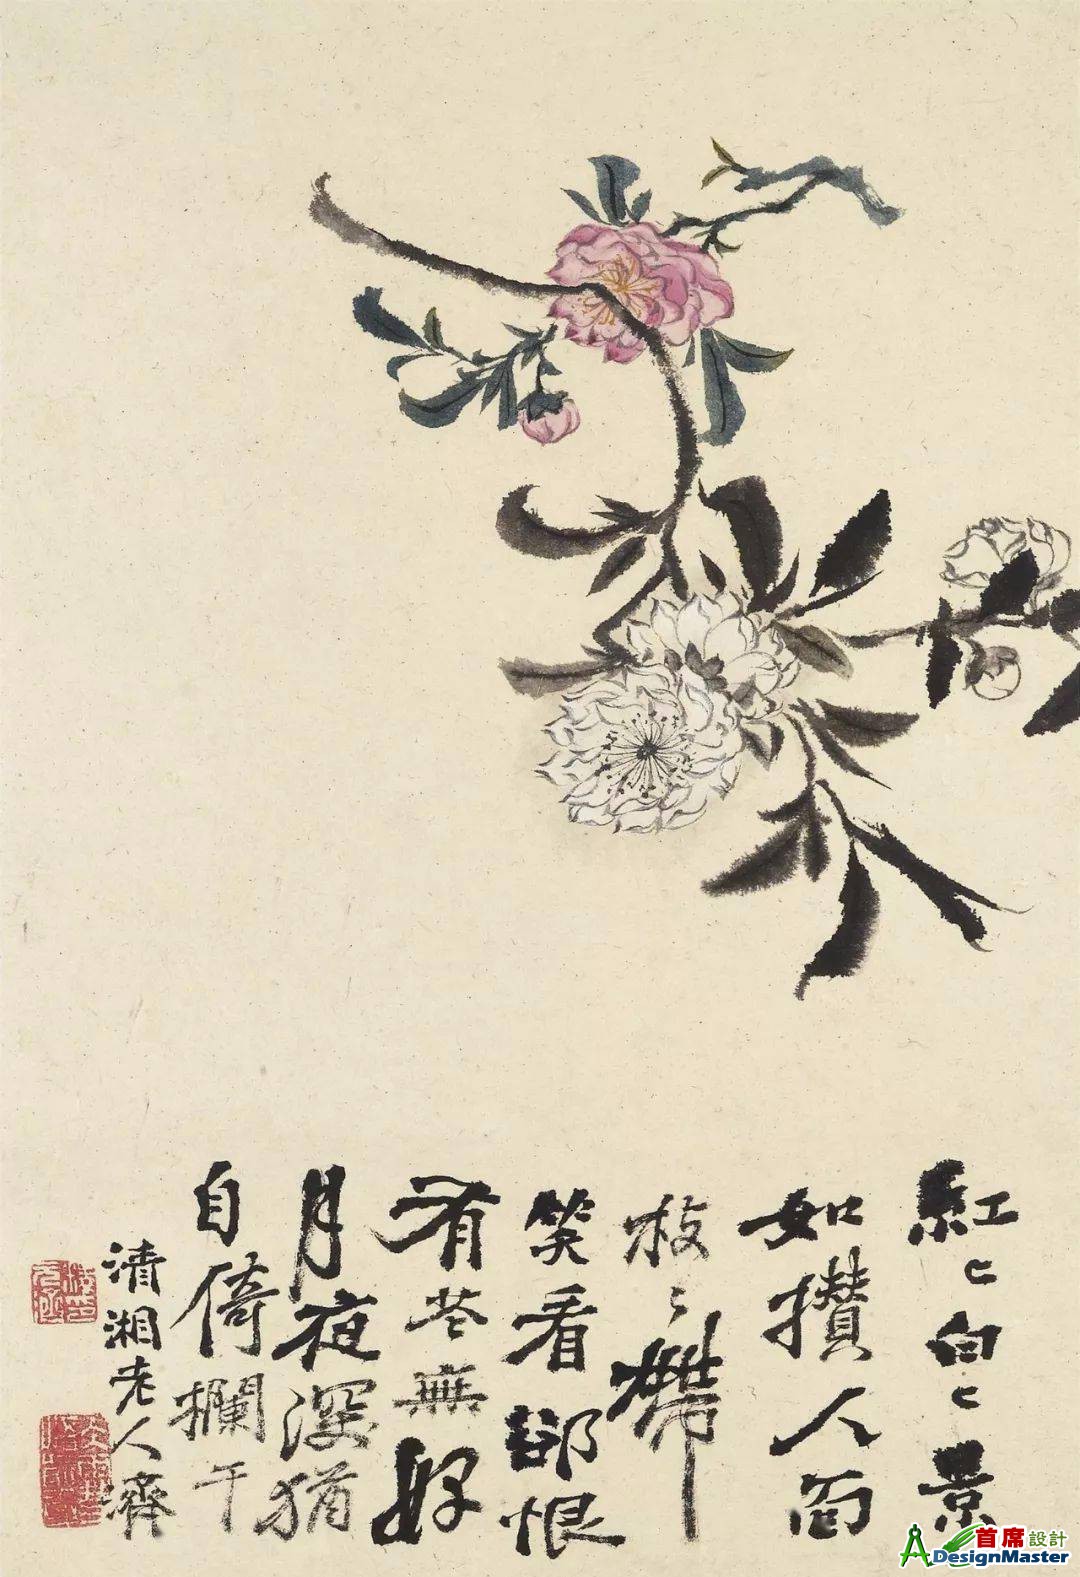 紅〻白〻景
如攢人面
枝〻帶
笑看郤恨
有花無好
月夜深猶
自倚欄干
清湘老人濟
首席設計
DesignMaster